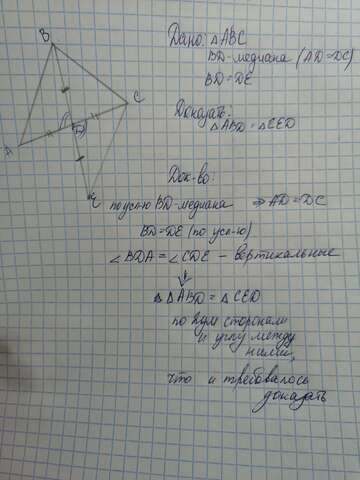 B
C
A
D
E
Дано: △ABC
BD-медиана (AD=DC)
BD=DE
Доказать:
△ABD=△CED
Док-во:
по усл-ю BD-медиана ⇒ AD=DC
BD=DE (по усл-ю)
∠BDA=∠CDE - вертикальные
⇓
△ △ABD=△CED
по двум сторонам
и углу между
ними,
что и требовалось
доказать